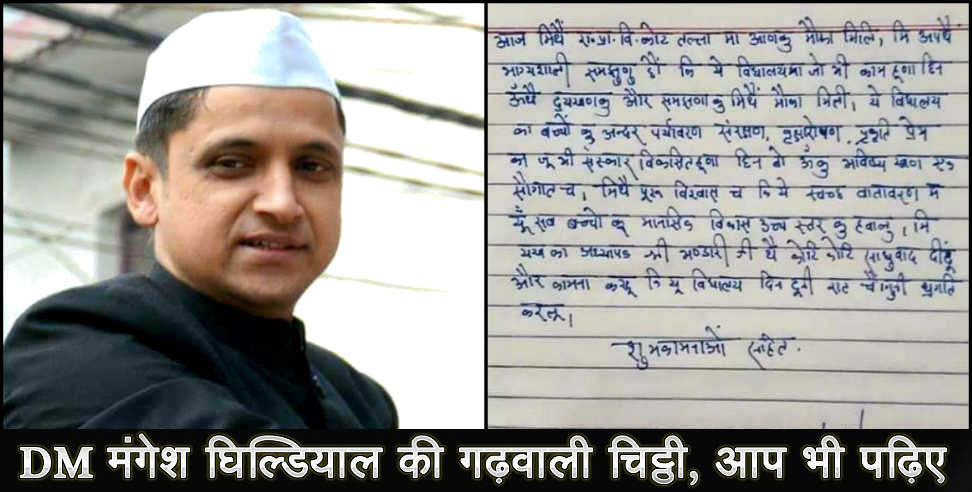 आज मिथैं रा.प्रा.वि.कोट तल्ला मा आणकु मौका मिलि, मि अपथै
भाग्यशाली समझणु छौं कि ये विद्यालयमा जो भी काम हूणा छिन
ऊँथै दुय्यखणकु और समझणा कु मिथैं मौका मिली। ये विद्यालय
का बच्चों कु अन्दर पर्यावरण संरक्षण, वृक्षारोपण, प्रकृति प्रेम
का जू भी संस्कार विकसित हूणा छिन वो ऊँकु भविष्य खुण एक
सौगात च। मिथै पूरू विश्वास च कि ये स्वच्छ वातावरण मे
यूँ सब बच्चों कू मानसिक विकास उच्च स्तर कु ह्वालु। मि
यखका अध्यापक श्री भण्डारी जी थै कोटि कोटि साधुवाद दींदू
और कामना करदू कि यू विद्यालय दिन दूनी रात चौगुनी प्रगति
करलू।
शुभकामनाओं सहित.
DM मंगेश घिल्डियाल की गढ़वाली चिट्ठी, आप भी पढ़िए